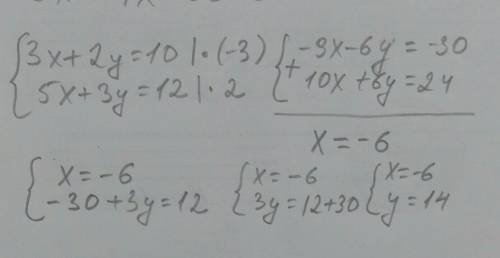 { 3x+2y=10 |·(-3)
5x+3y=12 |·2
+{ -9x-6y=-30
10x+6y=24
x=-6
{ x=-6
-30+3y=12
{ x=-6
3y=12+30
{ x=-6
y=14